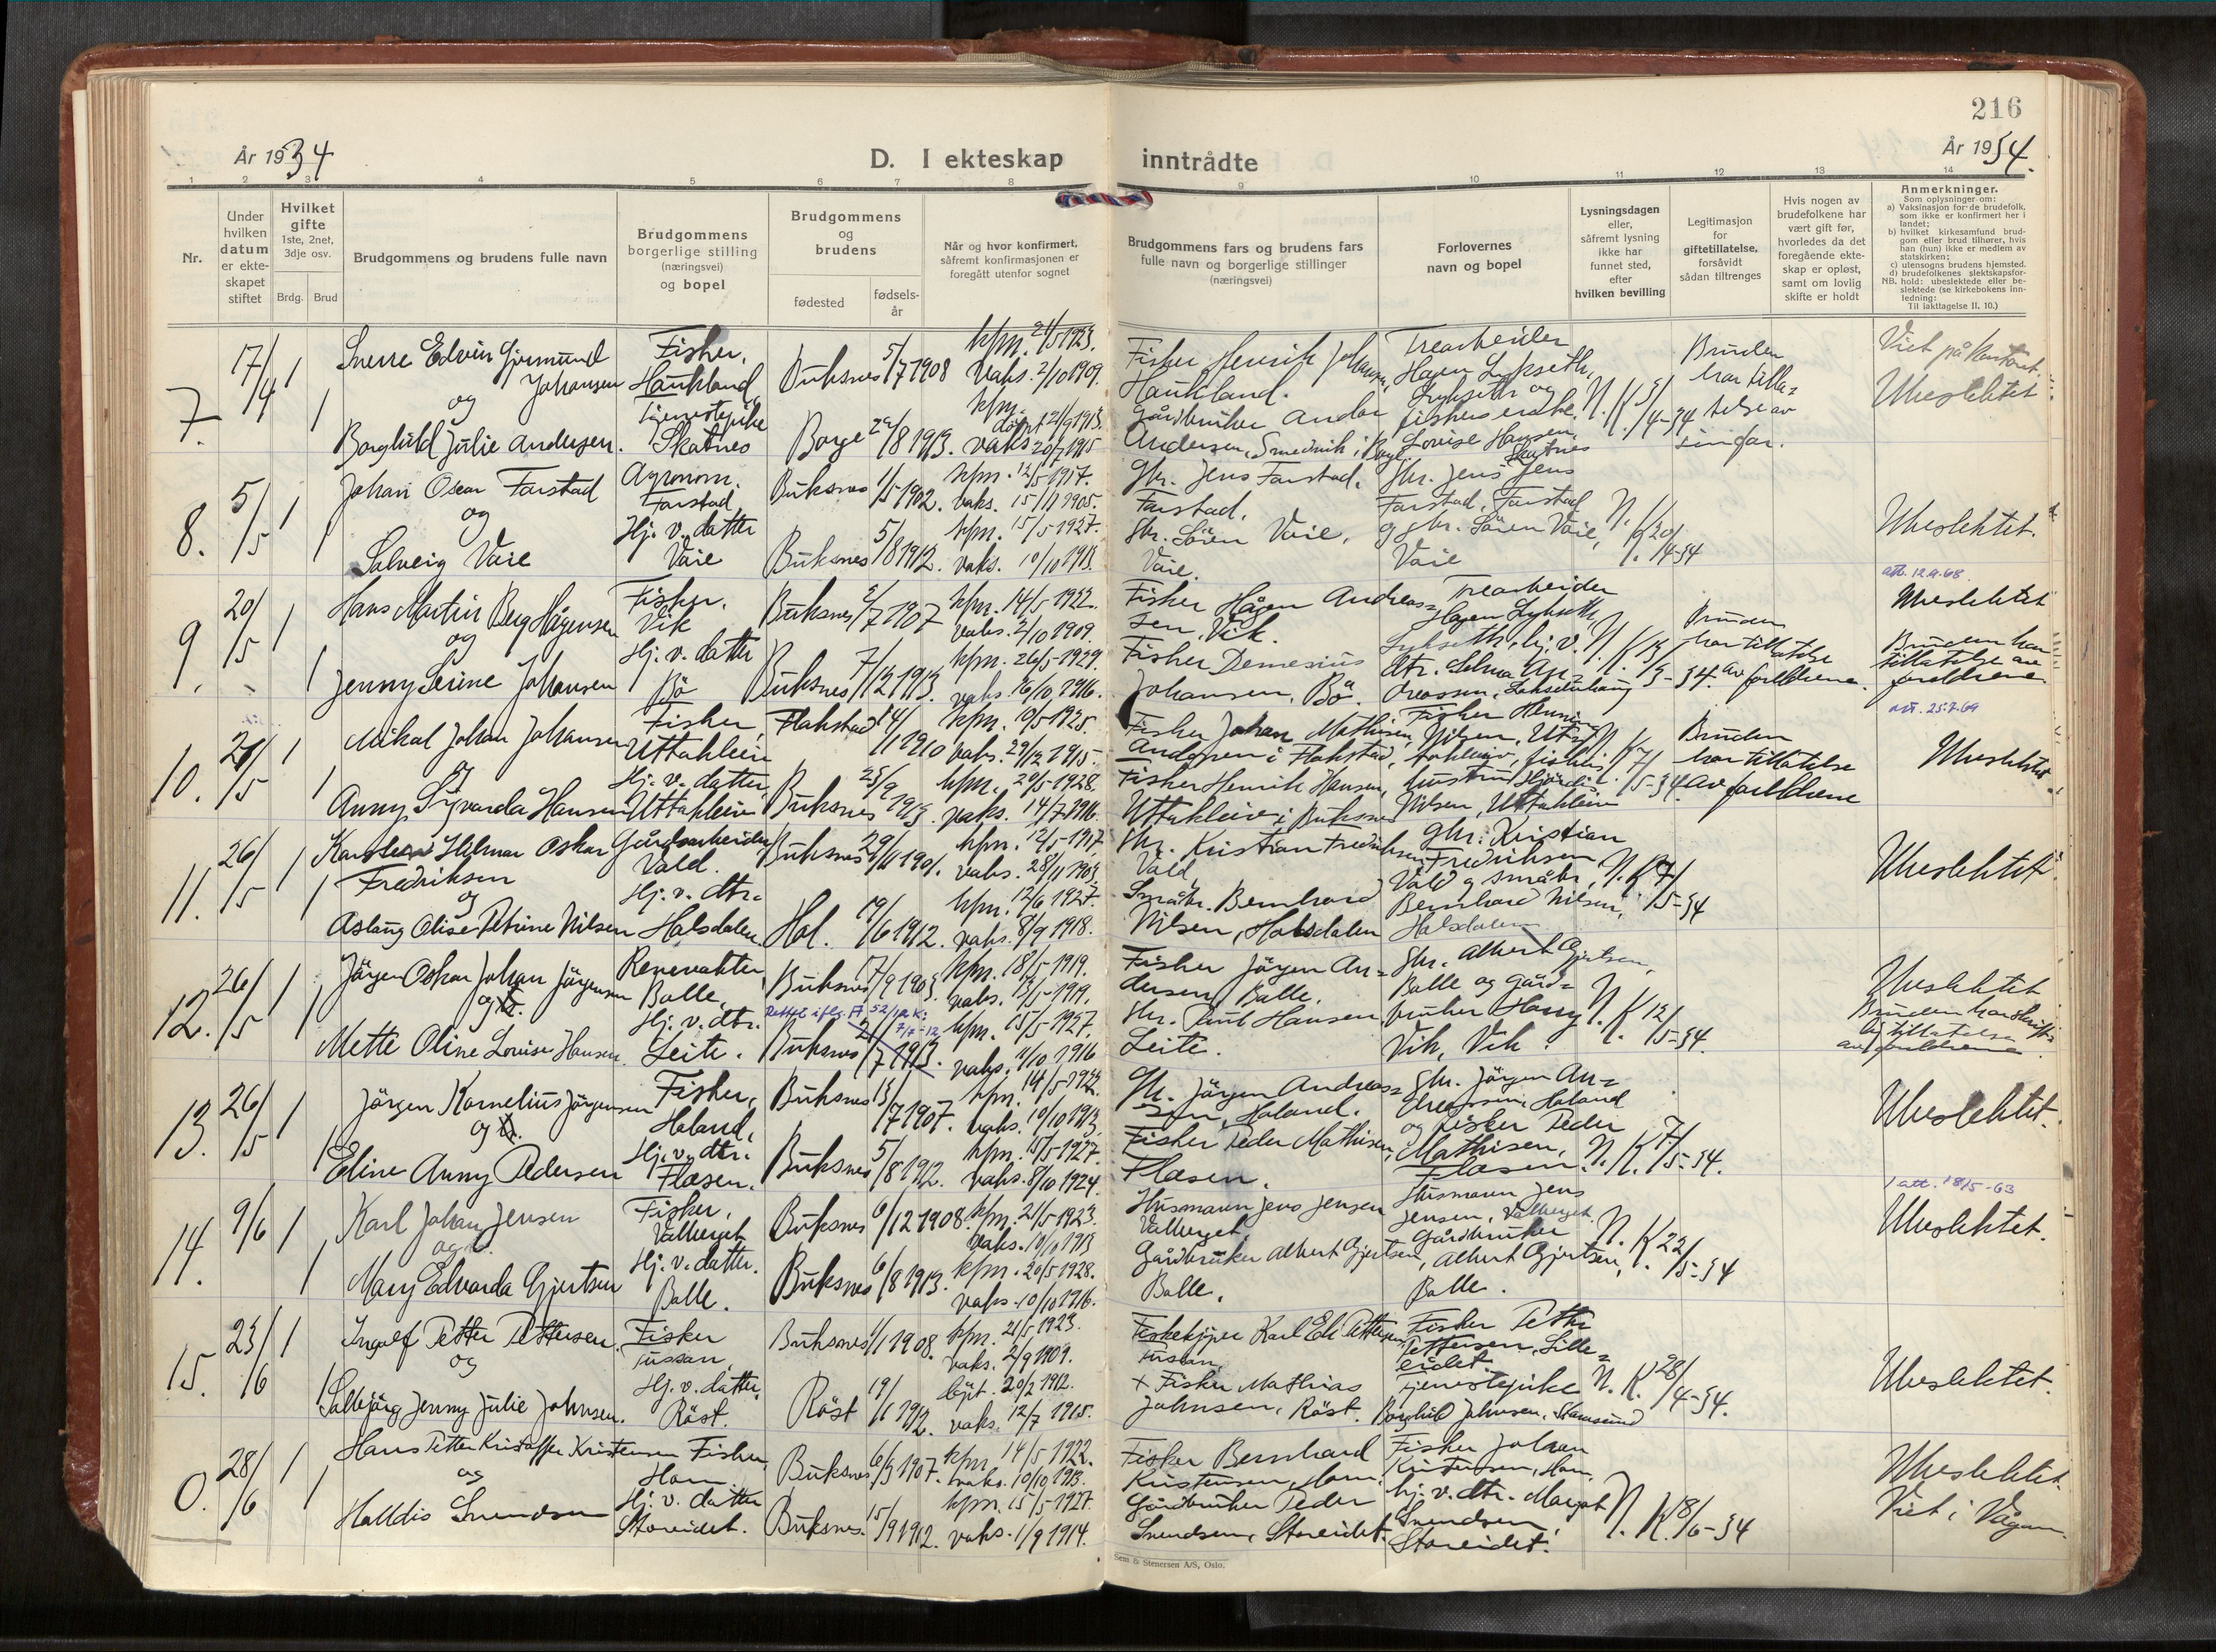 216
År 1934
D. I ekteskap inntrådte
År 1934.
1 2 3 4 5 6 7 8 9 10 11 12 13 14
Nr.
Under
hvilken
datum
er ekte-
skapet
stiftet
Hvilket
gifte
1ste, 2net,
3dje osv.
Brdg. Brud
Brudgommens og brudens fulle navn
Brudgommens
borgerlige stilling
(næringsvei)
og bopel
Brudgommens
og
brudens
fødested
fødsels-
år
Når og hvor konfirmert,
såfremt konfirmasjonen er
foregått utenfor sognet
Brudgommens fars og brudens fars
fulle navn og borgerlige stillinger
(næringsvei)
Forlovernes
navn og bopel
Lysningsdagen
eller,
såfremt lysning
ikke har
funnet sted,
efter
hvilken bevilling
Legitimasjon
for
giftetillatelse,
forsåvidt
sådan tiltrenges
Hvis nogen av
brudefolkene har
vært gift før,
hvorledes da det
foregående ekte-
skap er opløst,
samt om lovlig
skifte er holdt
Anmerkninger.
Som oplysninger om:
a) Vaksinasjon for de brudefolk,
som ikke er konfirmert her i
landet;
b) hvilket kirkesamfund brud-
gom eller brud tilhører, hvis
han (hun) ikke er medlem av
statskirken;
c) utensogns brudens hjemsted.
d) brudefolkenes slektskapsfor-
NB. hold: ubeslektede eller be-
slektede (se kirkebokens inn-
ledning:
Til iakttagelse II. 10.)
7. 17/4 1
Sverre Edvin Gjermund
Johansen
og
1 Borghild Julie Andersen.
Fisker,
Haukland
Tjenestepike
Skatnes
Buksnes 5/7 1908
Borge 22/8 1913.
kfm. 21/5 1923.
vaks. 2/10 1909.
kfm.
døpt 21/9 1913.
vaks 20/7 1915
Fisker Henrik Johansen,
Haukland.
Gårdbruker Andor
Andersen, Smedvik i Borge.
Trearbeider
Hagen Lykseth,
Lykseth og
fiskers enke
Lovise Hansen,
Skatnes
N. K. 5/4-34
Bruden
har tilla=
telse av
sin far.
Viet på kontoret.
Ubeslektet
8. 5/5 1
Johan Oscar Farstad
og
1 Solveig Vaie
Agronom.
Farstad
Hj. v. datter
Vaie
Buksnes 1/5 1902.
Buksnes 5/8 1912.
kfm. 12/5 1917.
vaks. 15/11 1905.
kfm. 15/5 1927.
vaks. 10/10 1913.
Gbr. Jens Farstad,
Farstad.
Gbr. Sören Vaie,
Vaie.
Gbr. Jens Jens
Farstad, Farstad
og gbr. Sören Vaie,
Vaie
N. K. 20/4-34
Ubeslektet.
9. 20/5 1
Hans Martin Berg Hågensen
og
1 Jenny Serine Johansen
Fisker,
Vik
Hj. v. datter
Bö
Buksnes 2/7 1907
Buksnes 7/12 1913.
kfm. 14/5 1922.
vaks. 2/10 1909.
kfm. 26/5 1929.
vaks. 16/10 1916.
Fisker Hågen Andreas=
sen, Vik.
Fisker Demesius
Johansen, Bö.
Trearbeider
Hagen Lykseth,
Lykseth, hj. v.
dtr. Selma An=
dreassen,
N. K. 13/3-34.
Bruden
har tillatelse
av foreldrene.
att. 12.9.68.
Ubeslektet
Bruden har
tillatelse av
foreldrene
10. 21/5 1
Mikal Johan Johansen
og
1 Anny Sigvarda Hansen
Fisker,
Uttakleiv
Hj. v. datter,
Uttakleiv
Flakstad 14/11 1910
Buksnes 25/9 1913.
kfm. 10/5 1925.
vaks. 29/12 1915.
kfm. 20/5 1928.
vaks. 14/7 1916.
Fisker Johan Mathisen,
Andopen i Flakstad,
Fisker Henrik Hansen,
Uttakleiv i Buksnes
Fisker Henning
Nilsen, Ut=
takleiv, fiskers
hustru Hjørdis
Nilsen, Uttakleiv
N. K. 7/5-34
Bruden
har tillatelse
av foreldrene
att. 25.2.69
Ubeslektet
11. 26/5 1
Karsten Hilmar Oskar
Fredriksen
og
1 Aslaug Olise Petrine Nilsen
Gårdsarbeider,
Vold.
Hj. v. dtr.
Holsdalen
Buksnes 29/11 1901.
Hol. 19/6 1912.
kfm. 12/5-1917
vaks. 28/11 1903
kfm. 12/6 1927.
vaks. 8/9 1918.
Gbr. Kristian Fredriksen
Vold,
Småbr. Bernhard
Nilsen, Holsdalen
Gbr. Kristian
Fredriksen
Vold og småbr,
Bernhard Nilsen,
Holsdalen
N. K. 7/5-34
Ubeslektet.
12. 26/5 1
Jörgen Oskar Johan Jörgensen
og
1 Mette Oline Lovise Hansen
Balle,
Hj. v. dtr.
Leite.
Buksnes 17/9 1903.
Buksnes 2/7 1913.
kfm. 18/5-1919.
vaks. 13/5-1919.
kfm. 15/5 1927.
vaks. 11/10 1916
Fisker Jörgen An=
dersen, Balle.
Gbr. Paul Hansen
Leite.
Gbr. Albert Gjertsen,
Balle og gård=
bruker Harry
Vik, Vik.
N. K. 12/5-34.
Ubeslektet
Bruden har skrift=
lig tillatelse
av foreldrene
13. 26/5 1
Jörgen Kornelius Jörgensen
og
1 Eline Anny Pedersen
Fisker,
Holand,
Hj. v. dtr.
Flæsen.
Buksnes 13/7 1907.
Buksnes 5/8 1912.
kfm. 14/5 1922.
vaks. 10/10 1913.
kfm. 15/5 1927.
vaks. 8/10 1924.
Gbr. Jörgen Andreas=
sen, Holand.
Fisker Peder Mathisen,
Flæsen.
Gbr. Jörgen An=
dreassen, Holand
og fisker Peder
Mathisen,
Flæsen.
N. K. 7/5-34.
Ubeslektet.
14. 9/6 1
Karl Johan Jensen
og
1 Mary Edvarda Gjertsen
Fisker,
Valberget
Hj. v. datter.
Balle.
Buksnes 6/12 1908.
Buksnes 6/8 1913.
kfm. 21/5 1923.
vaks. 10/10 1913
kfm. 20/5 1928.
vaks. 10/10 1916.
Husmann Jens Jensen
Valberget.
Gårdbruker Albert Gjertsen,
Balle.
Husmann Jens
Jensen, Valberget.
Gårdbruker
Albert Gjertsen,
Balle.
N. K. 22/5-34
1 att. 18/5-63
Ubeslektet.
15. 23/6 1
Ingolf Petter Pettersen.
og
1 Solbjörg Jenny Julie Johnsen.
Fisker
Tussan,
Hj. v. datter.
Röst.
Buksnes 1/1 1908.
Röst 19/1 1912.
kfm. 21/5 1923.
vaks. 2/9 1909.
døpt. 20/2 1912.
vaks. 12/7 1915.
Fiskekjøper Karl Edi Pettersen
Tussan,
+ Fisker Mathias
Johnsen, Röst.
Fisker Petter
Pettersen, Lille=
eidet
tjenestepike
Borghild Johnsen, Stamsund
N. K. 28/4-34.
Ubeslektet.
0. 28/6 1
Hans Petter Kristoffer Kristensen
og
1 Halldis Svendsen
Fisker,
Horn.
Hj. v. datter
Storeidet.
Buksnes 6/3 1907.
Buksnes. 15/9 1912.
kfm. 14/5 1922.
vaks. 10/10 1913.
kfm. 15/5 1927.
vaks. 1/9 1914.
Fisker Bernhard
Kristensen, Horn.
Gårdbruker Peder
Svendsen, Storeidet.
Fisker Johan
Kristensen, Horn.
hj. v. dtr. Margot
Svendsen
Storeidet.
N. K. 18/6-34
Ubeslektet.
Viet i Vågan.
Sem & Stenersen A/S, Oslo.